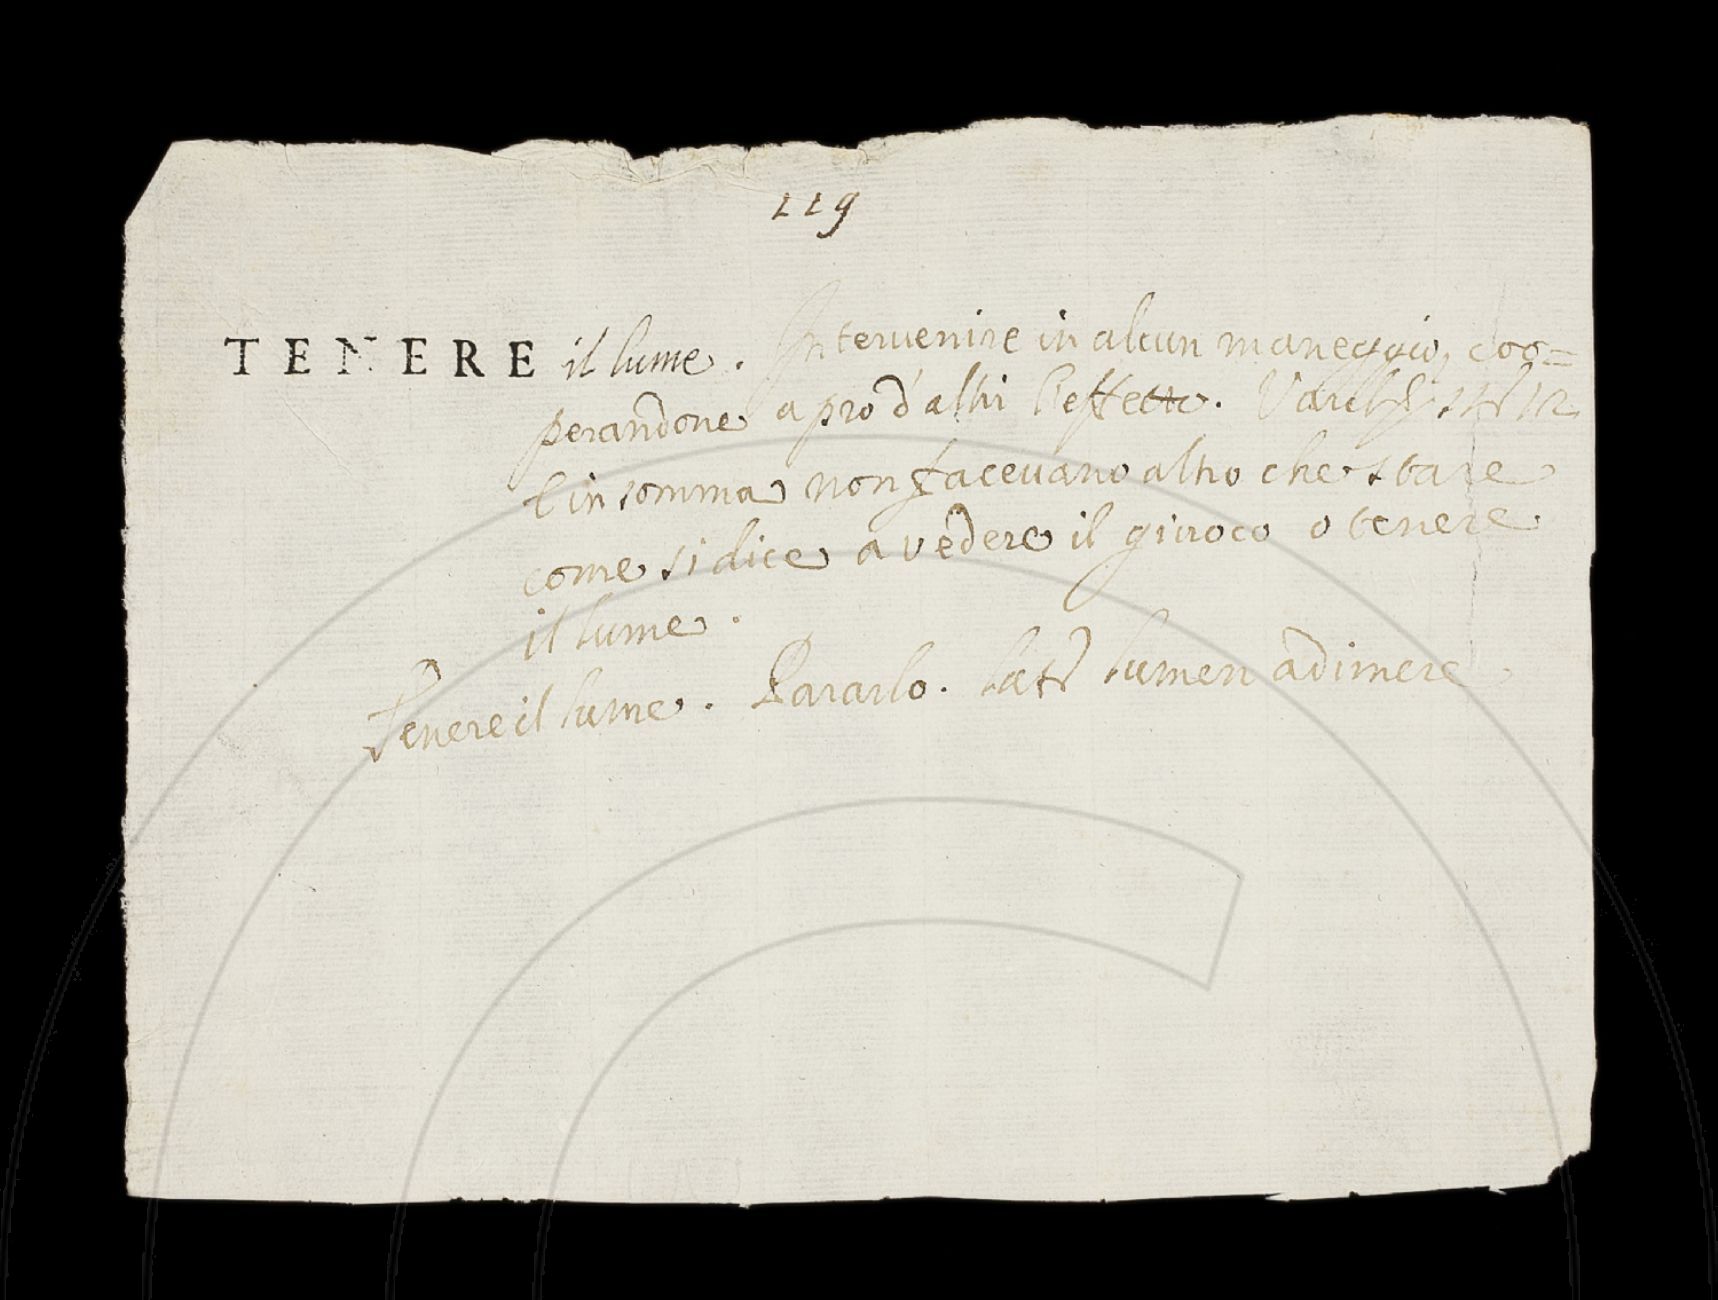 119
TENERE il lume. Intervenire in alcun maneggio, coo=
perandone a pro d'altri l'effetto. Varch.
E in somma non facevano altro che stare
come si dice a vedere il giuoco o tenere
il lume.
Tenere il lume. Pararlo. lat. lumen adimere